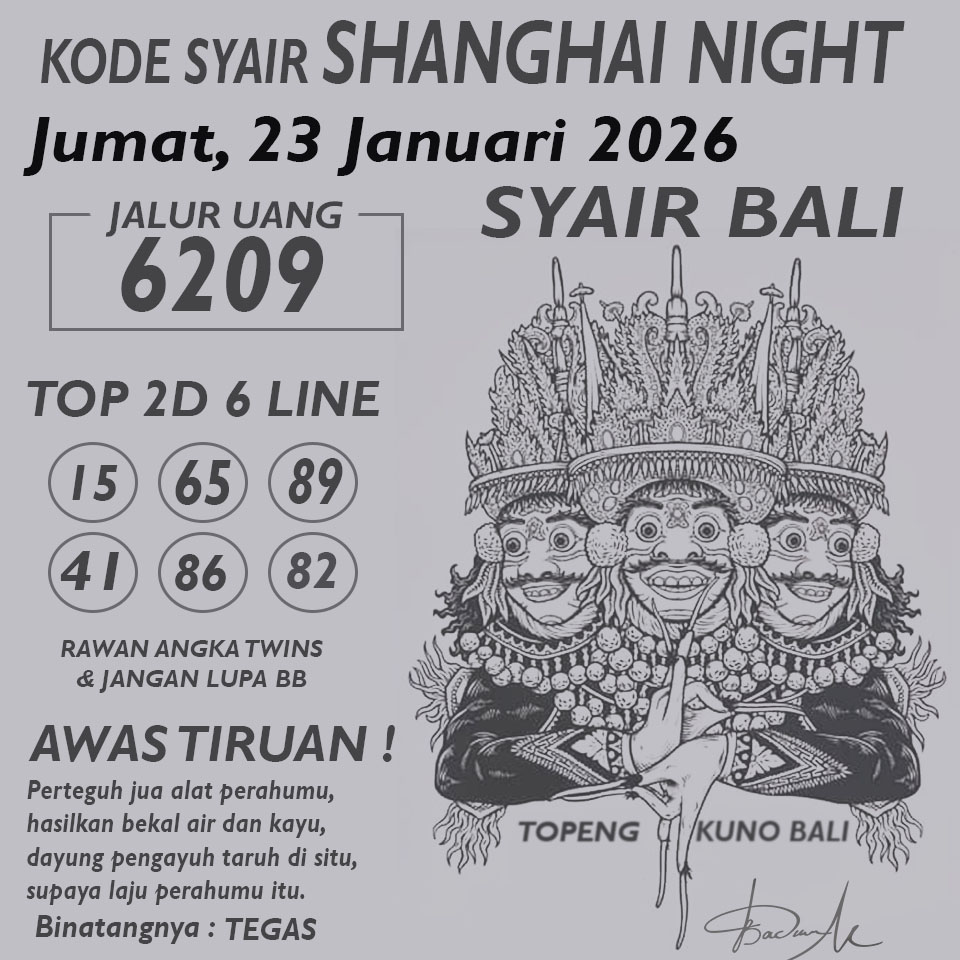 KODE SYAIR SHANGHAI NIGHT
Jumat, 23 Januari 2026
SYAIR BALI
JALUR UANG
6209
TOP 2D 6 LINE
15 65 89
41 86 82
RAWAN ANGKA TWINS
& JANGAN LUPA BB
AWAS TIRUAN !
Perteguh jua alat perahumu,
hasilkan bekal air dan kayu,
dayung pengayuh taruh di situ,
supaya laju perahumu itu.
Binatangnya : TEGAS
TOPENG KUNO BALI